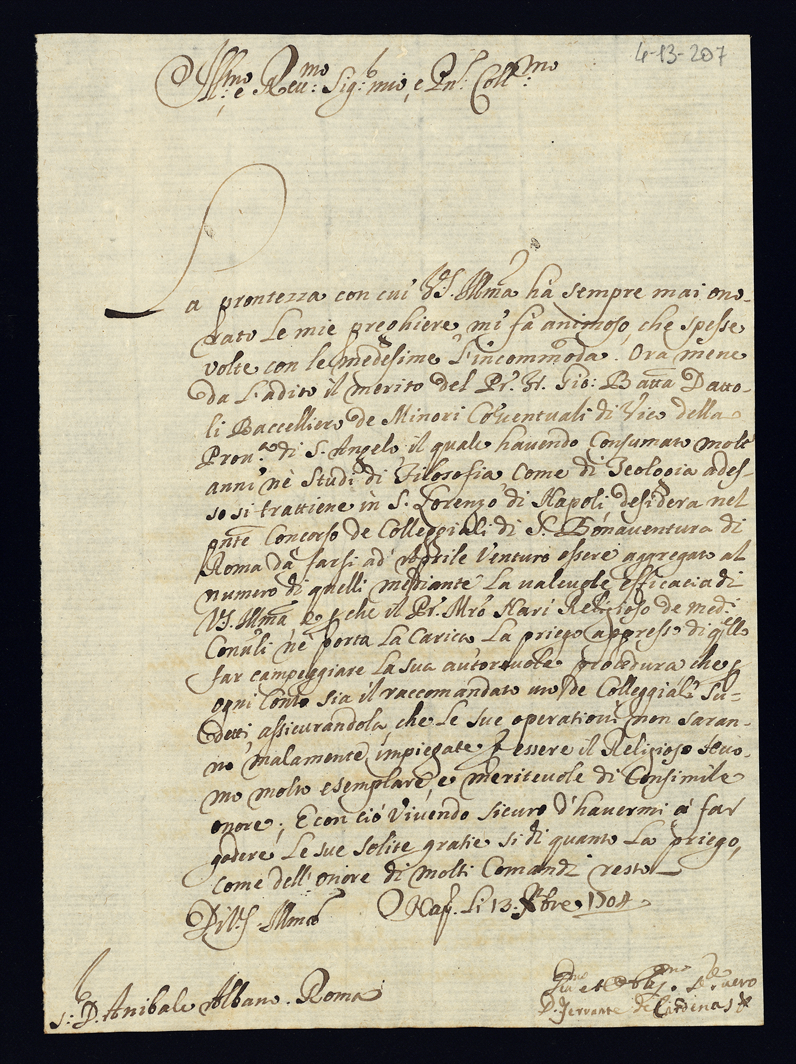 4-13-207
Ill:mo e Reu:mo Sig:r mio, e Pn: Coll:mo
La prontezza con cui V.S. Illma hà sempre mai ono-
rato le mie preghiere mi fà animoso, che spesse
volte con le medesime l'incommoda. Ora mene
da l'adito il merito del Pr. Fr. Gio: Batta Datto-
li Baccelliero de Minori Couentuali di Vico della
Prou.a di S. Angelo, il quale hauendo Consumato molt'
anni nè Studi di Filosofia, Come di Teologia ades-
so si trattiene in S. Lorenzo di Napoli, desidera nel
pnte Concorso de Colleggiali di S. Bonauentura di
Roma dà farsi ad' Aprile Venturo essere aggregato al
numero di quelli mediante la valeuole efficacia di
V.S. Illma e p che il Pr. Mro Nari Religioso de med.i
Conu.li nè porta la Carica la priego appresso di q.llo
far campeggiare la sua autoreuole procedura che p
ogni Conto sia il raccomandato uno de Colleggiali Su-
detti, assicurandola, che le sue operationi non saran-
no malamente impiegate p essere il Religioso
mo molto esemplare, e meriteuole di Consimile
onore; E con ciò Viuendo sicuro d'hauermi à far
godere le sue solite gratie si di quanto la priego,
come dell'onore di molti Comandi resto
Di V.S. Illma Nap. li 13. Xbre 1704
S. D. Anibale Albano. Roma
Diu.mo et Oblig.mo Se.re uero
D. Ferrante de Cardenas